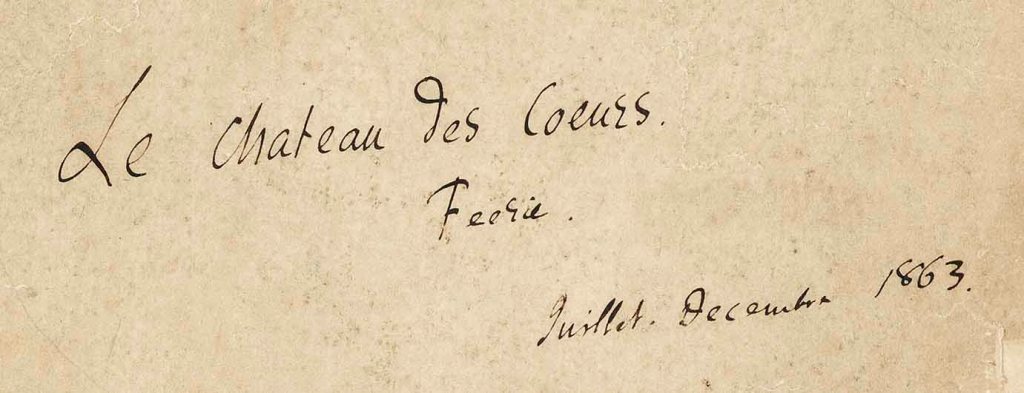 Le Chateau des Coeurs.
Feerie.
Juillet. Decembre 1863.